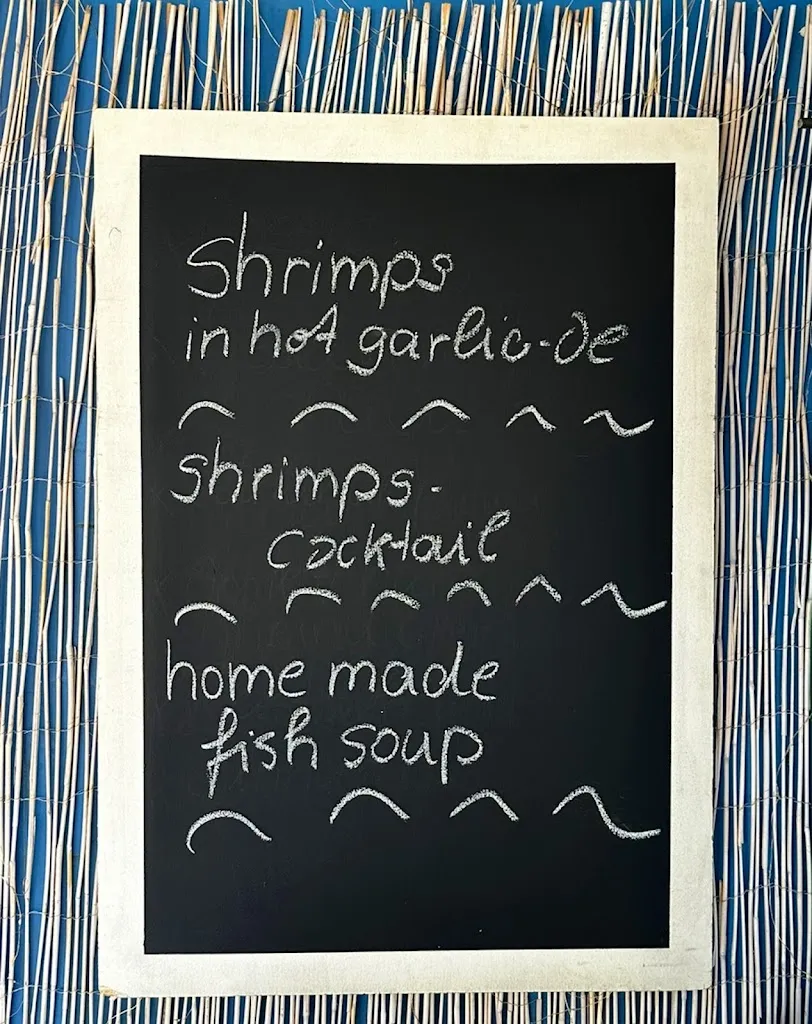 Shrimps
in hot garlic-Oe
shrimps-
cocktail
home made
fish soup